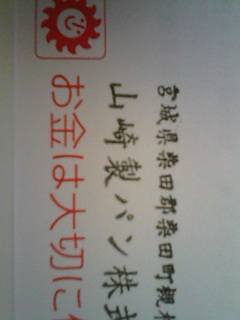 宮城県柴田郡柴田町槻木
山崎製パン株式
お金は大切に